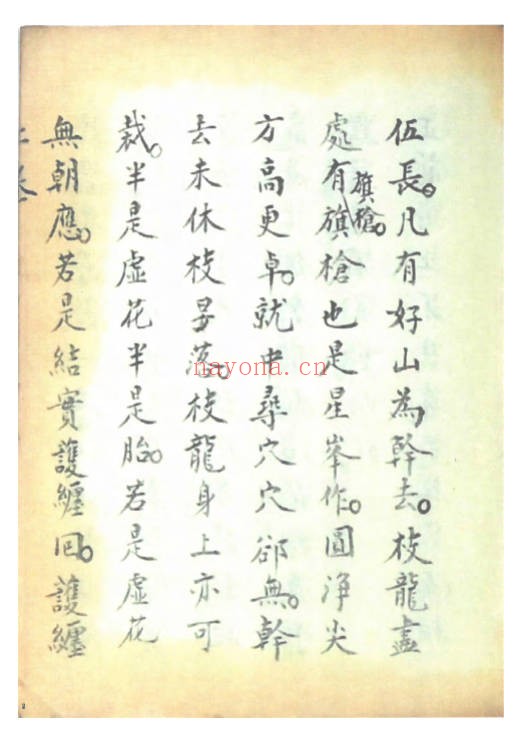 伍長。凡有好山為幹去。枝龍盡
處有旗槍也是星峯作。圓淨尖
旗槍。
方高更卓。就中尋穴穴卻無。幹
去未休枝是落。枝龍身上亦可
裁。半是虛花半是胎。若是虛花
無朝應。若是結實護纏回。護纏
nayona.cn